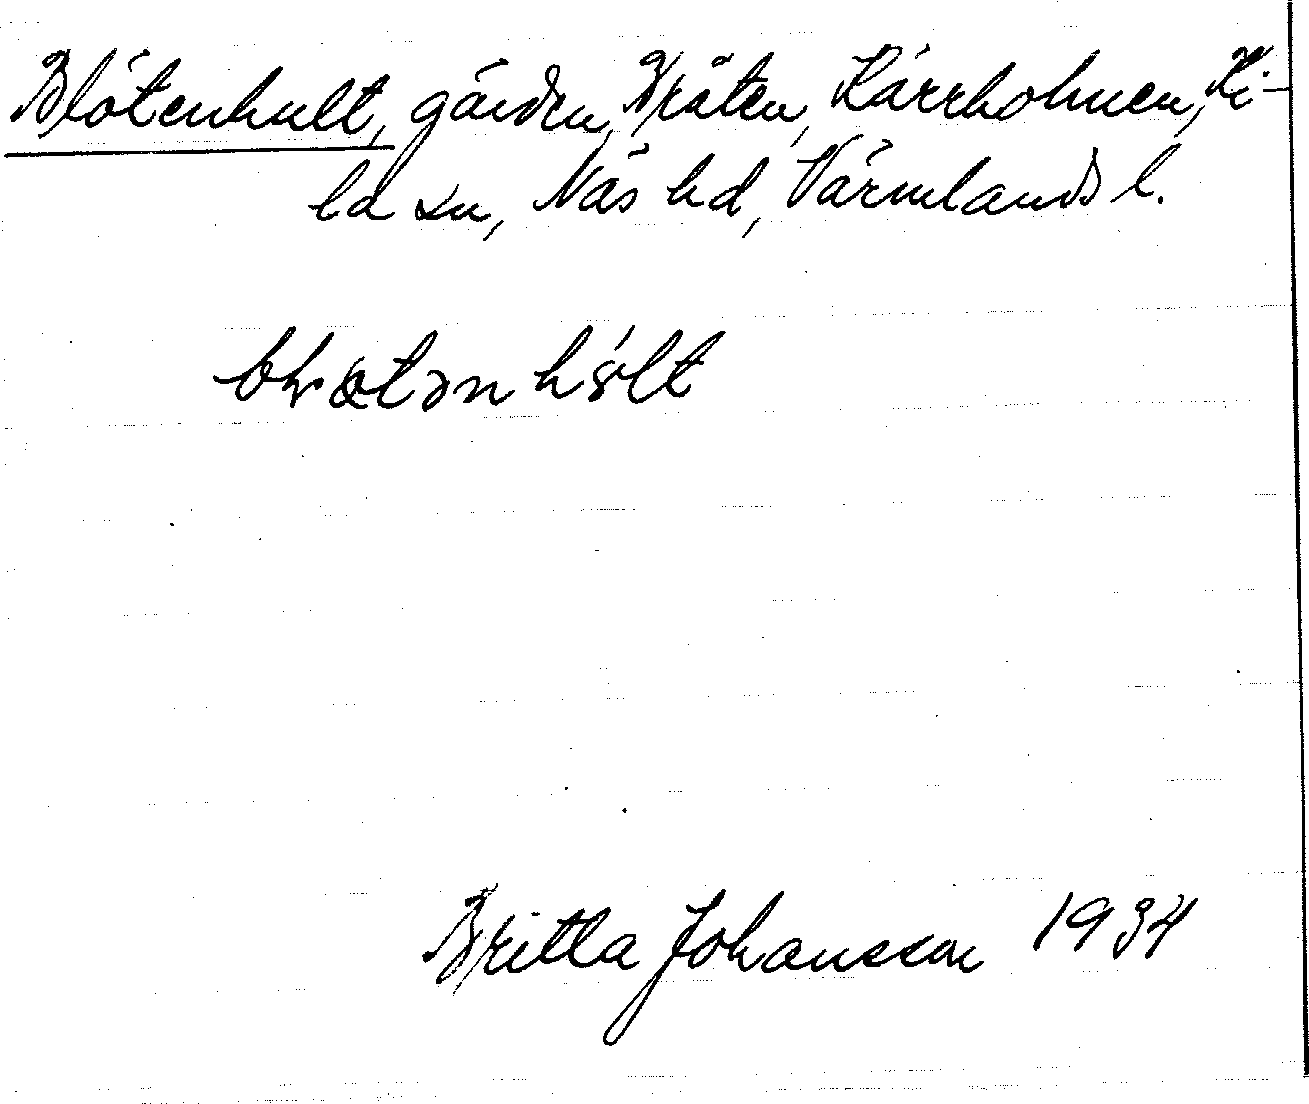 Blötenhult, gården Bråten, Kärrholmen, Ki-
la sn, Näs hd, Värmlands l.
Britta Johansson 1934